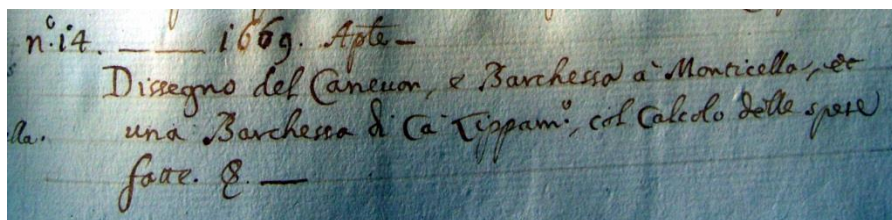 n.º 14. — 1669. Apte —
Dissegno del Caneuon, e Barchessa à Monticella, et
una Barchessa di Cà Tippam.º, col Calcolo delle spese
lla.
fatte. &. —